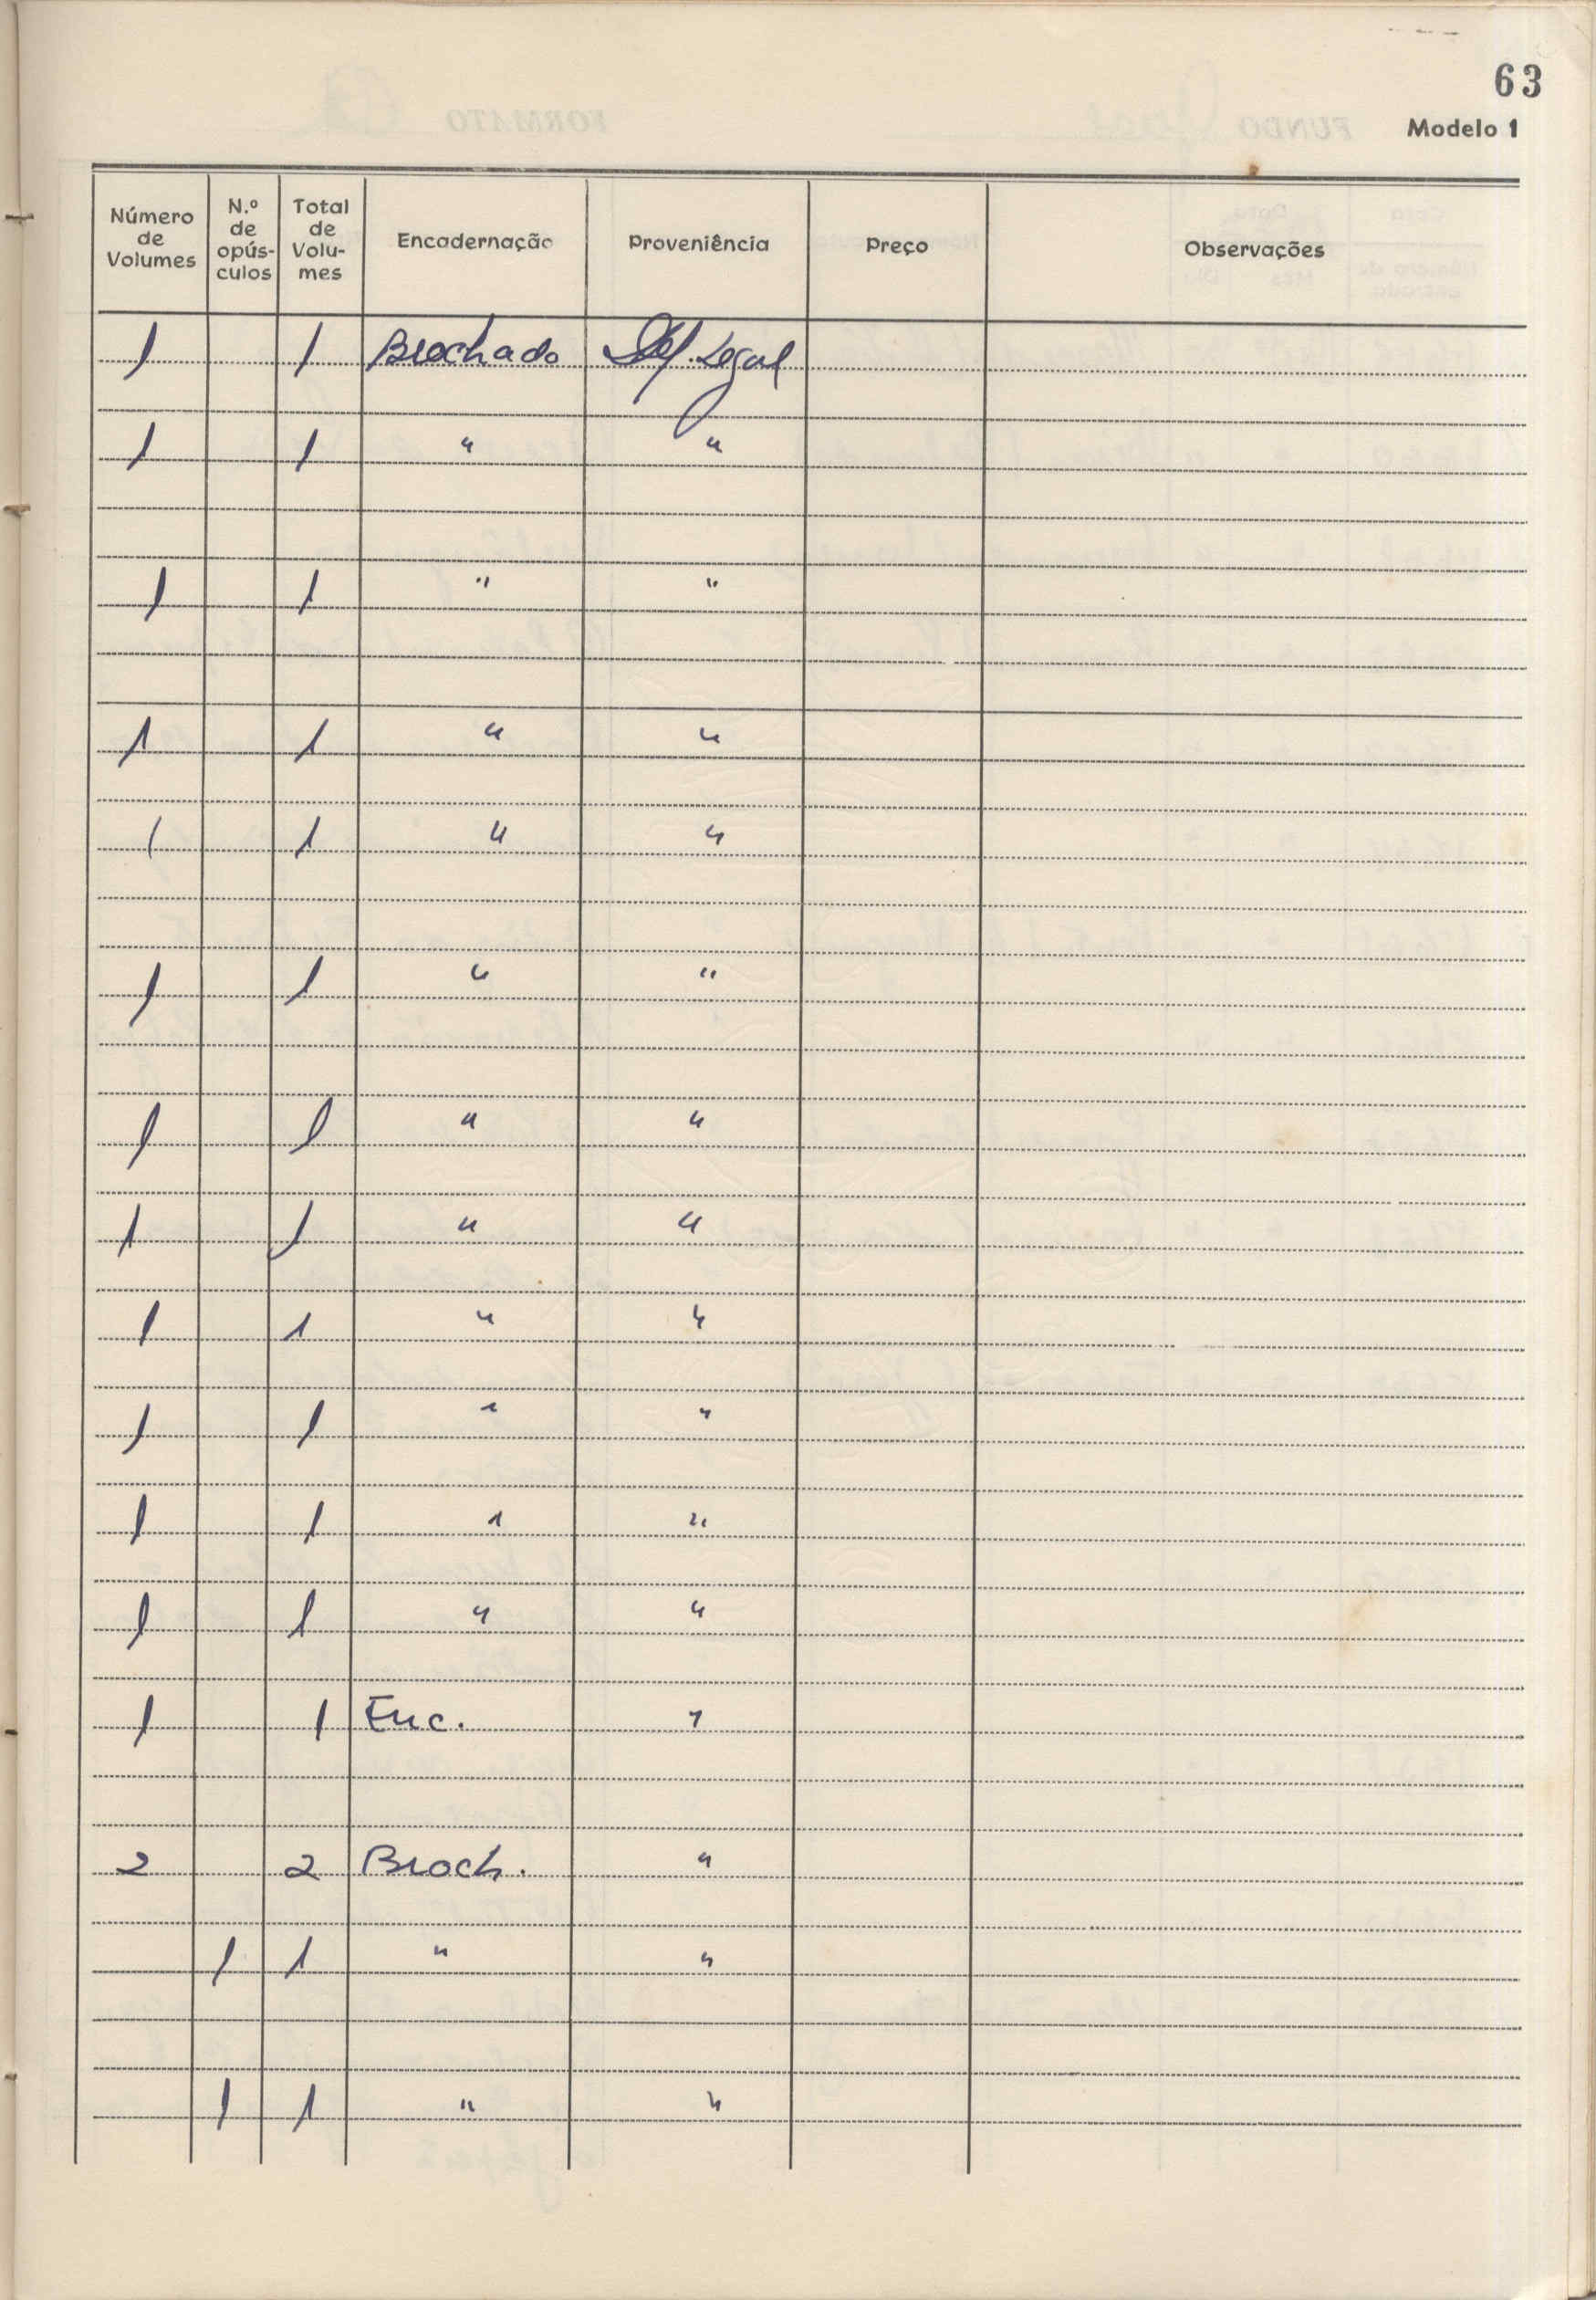 63
Modelo 1
Número de Volumes N.º de opús-culos Total de Volu-mes Encadernação Proveniência Preço Observações
1 1 Brochado Dep. Legal
1 1 " "
1 1 " "
1 1 " "
1 1 " "
1 1 " "
1 1 " "
1 1 " "
1 1 " "
1 1 " "
1 1 " "
1 1 " "
1 1 Enc. "
2 2 Broch. "
1 1 " "
1 1 " "